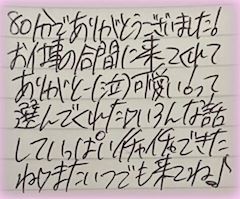 80分でありがとうございました!
お仕事の合間に来てくれて
ありがとー(泣)可愛いって
選んでくれたりいろんな話
していっぱいイチャイチャできた
ねりまたいつでも来てね♪